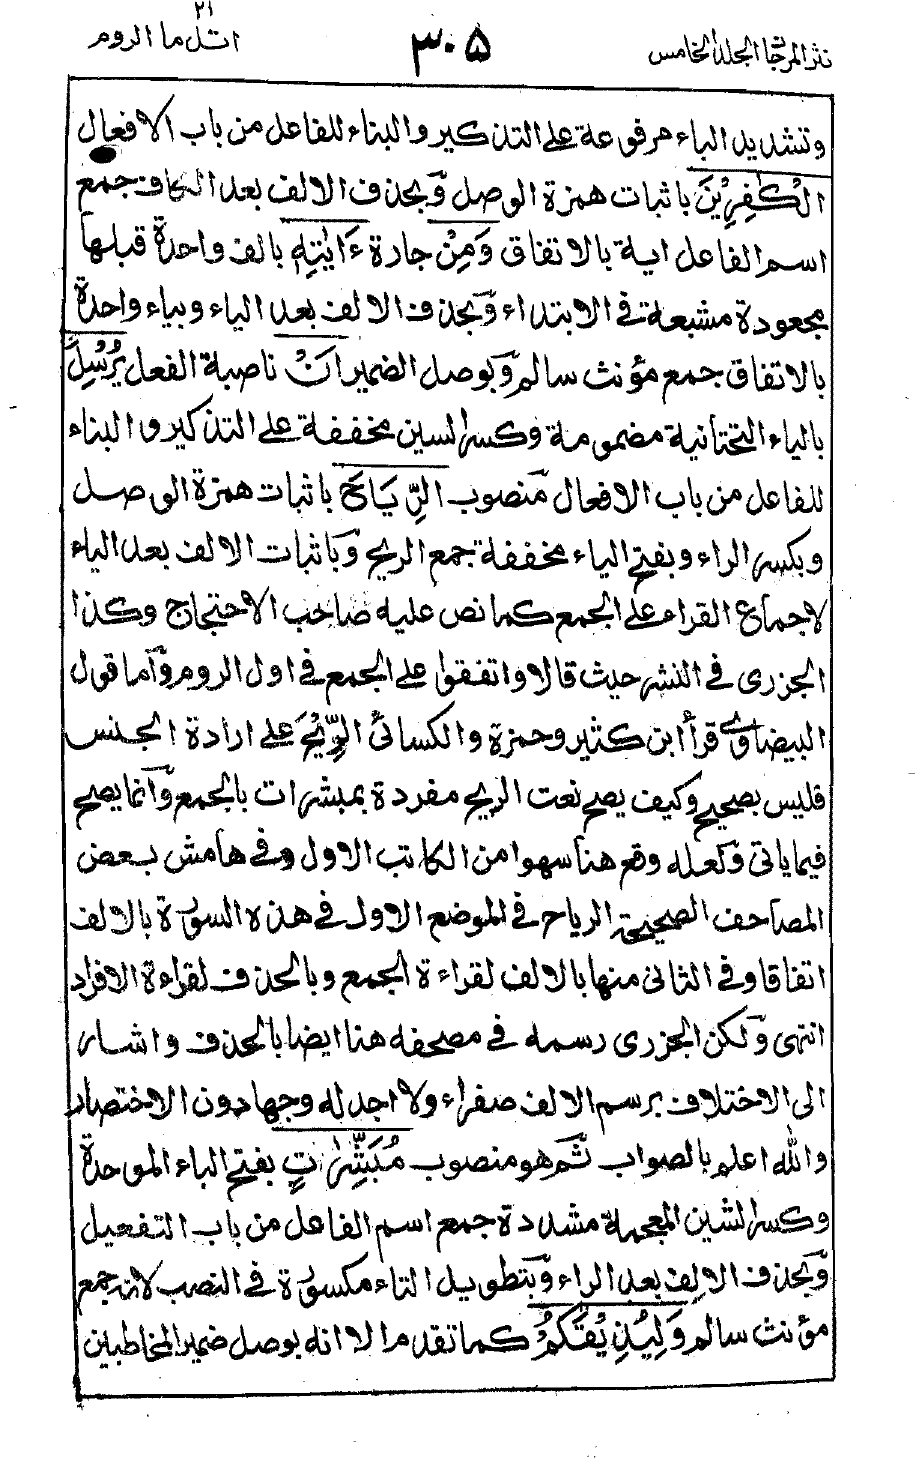 نثر المرجان الجلد الخامس
٣٠٥
٢١
اتل ما الروم
وتشديد الباء مرفوعة على التذكير والبناء للفاعل من باب الافعال
الْكٰفِرِيْنَ باثبات همزة الوصل وبحذف الالف بعد الكاف جمع
اسم الفاعل اية بالاتفاق وَمِنْ جارة ءَايٰتِهٖ بالف واحدة قبلها
مجعودة مشبعة في الابتداء وبحذف الالف بعد الياء وبياء واحدة
بالاتفاق جمع مؤنث سالم وبوصل الضمير اَنْ ناصبة الفعل يُرْسِلَ
بالياء التحتانية مضمومة وكسر السين مخففة على التذكير والبناء
للفاعل من باب الافعال منصوب الرِّيَاحَ باثبات همزة الوصل
وبكسر الراء وبفتح الياء مخففة جمع الريح وباثبات الالف بعد الياء
لاجماع القراء على الجمع كما نص عليه صاحب الاحتجاج وكذا
الجزرى في النشر حيث قالا واتفقوا على الجمع في اول الروم وأما قول
البيضاوي قرأ ابن كثير وحمزة والكسائي الرِّيْحَ على ارادة الجنس
فليس بصحيح وكيف يصح نعت الريح مفردة بمبشرات بالجمع وانما يصح
فيما ياتى ولعله وقع هنا سهوا من الكاتب الاول وفي هامش بعض
المصاحف الصحيحة الرياح في الموضع الاول في هذه السورة بالالف
اتفاقا وفي الثانى منها بالالف لقراءة الجمع وبالحذف لقراءة الافراد
انتهى ولكن الجزرى رسمه في مصحفه هنا ايضا بالحذف واشار
الى الاختلاف برسم الالف صفراء ولا اجد له وجها دون الاختصار
والله اعلم بالصواب ثم هو منصوب مُبَشِّرٰتٍ بفتح الباء الموحدة
وكسر الشين المعجمة مشددة جمع اسم الفاعل من باب التفعيل
وبحذف الالف بعد الراء وبتطويل التاء مكسورة في النصب لانه جمع
مؤنث سالم وَلِيُذِيْقَكُمْ كما تقدم الا انه بوصل ضمير المخاطبين